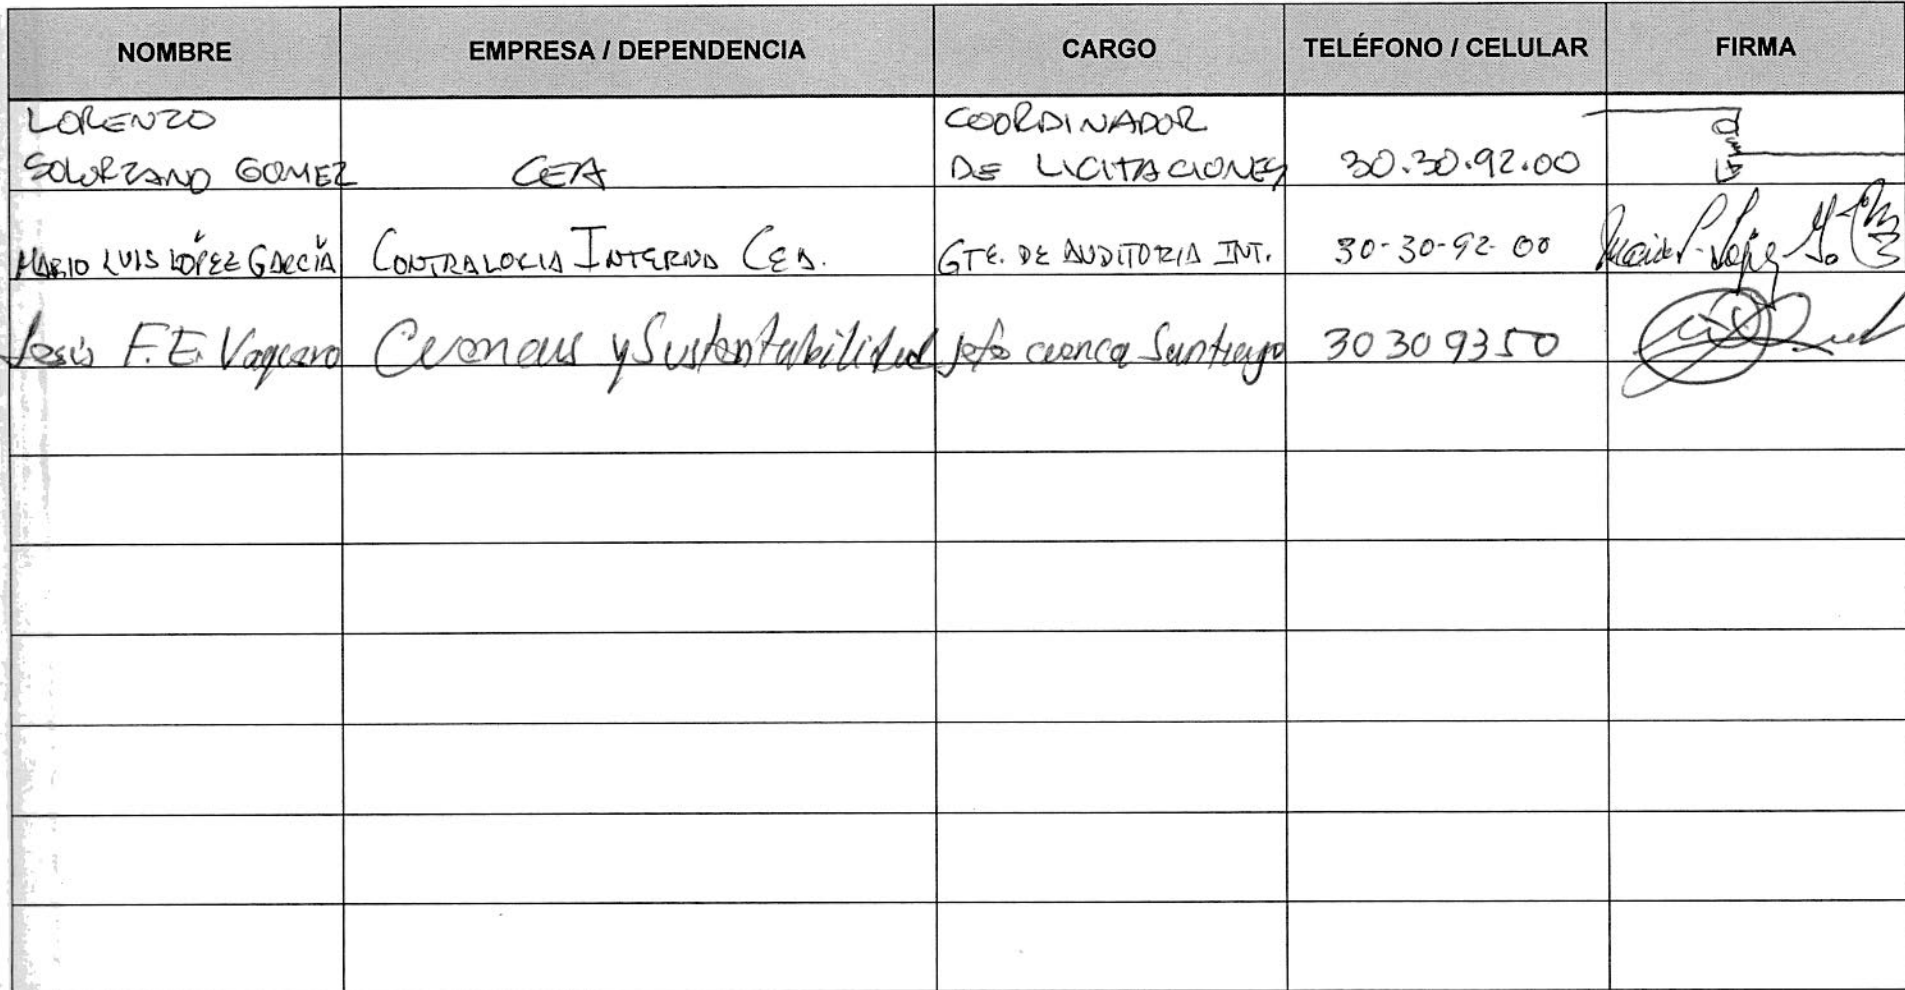 NOMBRE EMPRESA / DEPENDENCIA CARGO TELÉFONO / CELULAR FIRMA
LORENZO COORDINADOR
SOLORZANO GOMEZ CEA DE LICITACIONES 30.30.92.00
MARIO LUIS LÓPEZ GARCÍA CONTRALORIA INTERNA CEA. GTE. DE AUDITORIA INT. 30-30-92-00
Jesús F.E. Vaquero Cuencas y Sustentabilidad Jefe cuenca Santiago 30309350